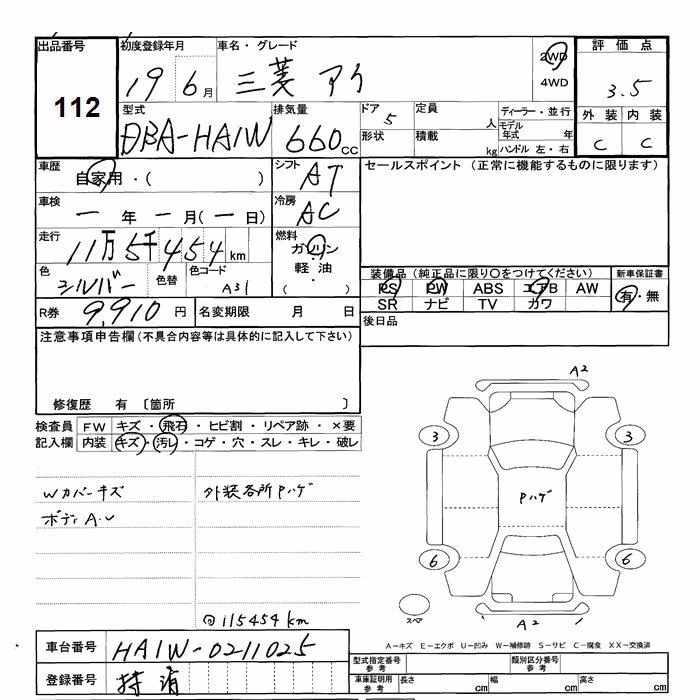 出品番号
112
初度登録年月
19 6月
車名・グレード
三菱 アイ
2WD
4WD
評価点
3.5
外装 内装
C C
型式
DBA-HA1W
排気量
660cc
ドア
5
定員
人
形状
積載
kg
ディーラー・並行
モデル年式 年
ハンドル 左・右
車歴
自家用・( )
シフト
AT
セールスポイント(正常に機能するものに限ります)
車検
一年一月(一日)
冷房
AC
走行
11万5千454km
燃料
ガソリン
軽油
( ・ )
色
シルバー
色替
色コード
A31
装備品(純正品に限り○をつけてください)
新車保証書
PS PW ABS エアB AW
有・無
SR ナビ TV カワ
R券
9,910円
名変期限 月 日
後日品
注意事項申告欄(不具合内容等は具体的に記入して下さい)
修復歴 有〔箇所 〕
検査員記入欄
FW キズ・飛石・ヒビ割・リペア跡・×要
内装 キズ・汚レ・コゲ・穴・スレ・キレ・破レ
Wカバーキズ
外装各所Pハゲ
ボディA.U
115454km
A2
3
3
Pハゲ
6
6
スペア
A2
A-キズ E-エクボ U-凹み W-補修跡 S-サビ C-腐食 XX-交換済
車台番号
HA1W-0211025
登録番号
抹消
型式指定番号
参考
類別区分番号
参考
車庫証明用
参考
長さ cm
幅 cm
高さ cm